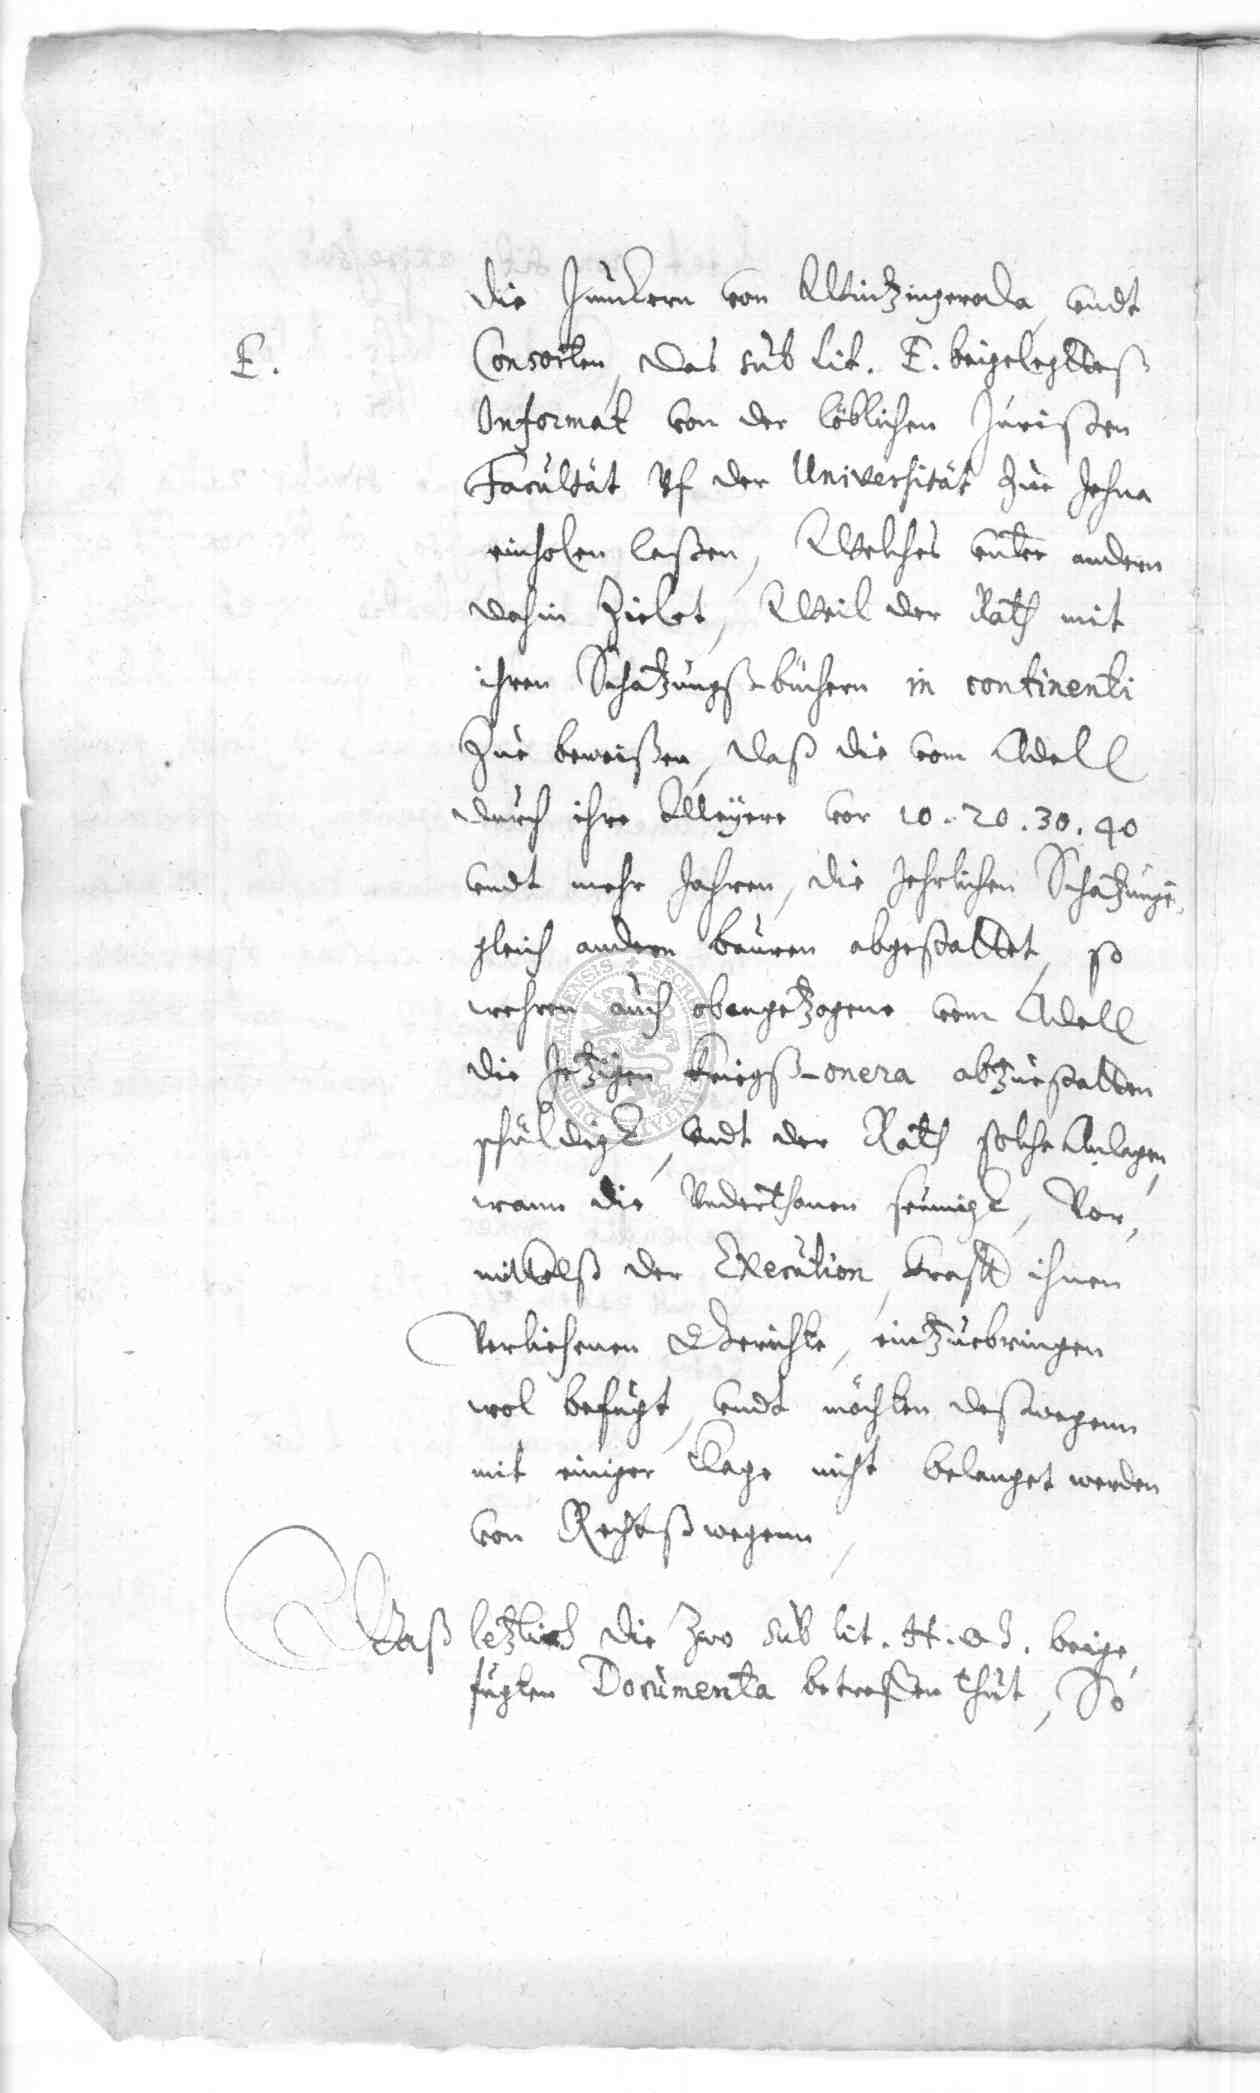 die Junckern von Wintzingeroda, undt
E.
Consorten, das sub Lit. E. beigelegttes
Informat von der löblichen Juristen
Facultät Vf der Universität Zue Jehna
einholen laßen, Welches unter andern
dahin Zielet, Weil der Rath mit
ihren Schatzungß-büchern in continenti
Zue beweißen, daß die vom Adell
durch ihre Meyere vor 10. 20. 30. 40
undt mehr Jahren, die Jehrlichen Schatzunge
gleich andern bauren abgestattet, so
wehren auch obangetzogene vom Adell
die Jetzigen Kriegß-onera abZuestatten
schuldigk, undt der Rath solche Anlagen,
wann die Vnderthanen seumigk, Ver,
mittelß der Execution, krafft ihnen
Verliehenen Gerichte, eintZuebringen
wol befugt, undt möchten deßwegenn
mit einiger Clage nicht belanget werden
von Rechtßwegenn
Waß letzlich die Zwo sub lit. H. & J. beige,
fugten Documenta betreffen thut, So